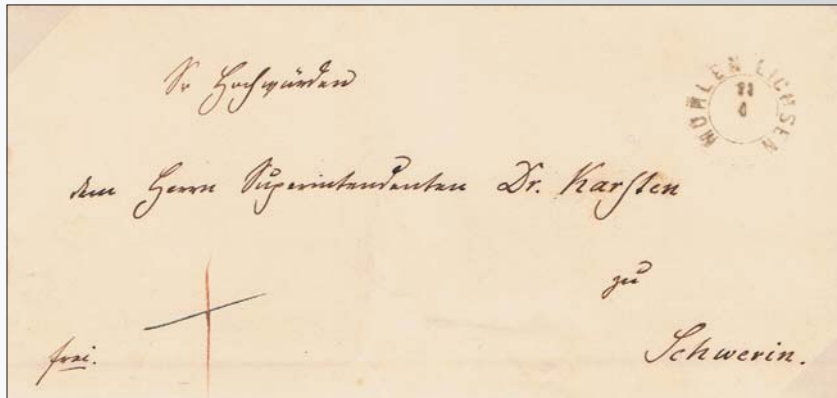 Sr Hochwürden
MÜHLEN EICHSEN
dem Herrn Superintendenten Dr. Karsten
zu
frei.
Schwerin.